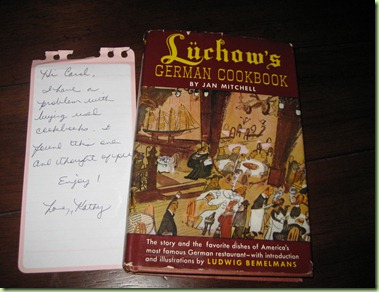 Hi Carol,
I have a
problem with
buying used
cookbooks. I
found this one
and thought of you.
Enjoy!
Love, Kathy
Lüchow's
GERMAN COOKBOOK
BY JAN MITCHELL
The story and the favorite dishes of America's
most famous German restaurant—with introduction
and illustrations by LUDWIG BEMELMANS